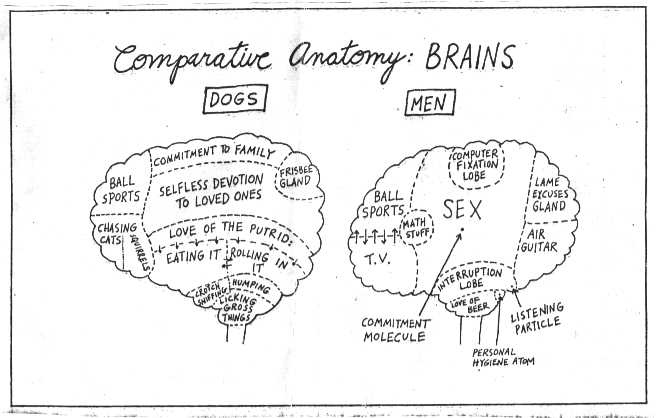 Comparative Anatomy: BRAINS
DOGS
COMMITMENT TO FAMILY
BALL
SPORTS
FRISBEE
GLAND
SELFLESS DEVOTION
TO LOVED ONES
CHASING
CATS
SQUIRRELS
LOVE OF THE PUTRID:
EATING IT
ROLLING IN
IT
CROTCH
SNIFFING
HUMPING
LICKING
GROSS
THINGS
MEN
COMPUTER
FIXATION
LOBE
BALL
SPORTS
MATH
STUFF
T.V.
SEX
LAME
EXCUSES
GLAND
AIR
GUITAR
INTERRUPTION
LOBE
LOVE OF
BEER
COMMITMENT
MOLECULE
LISTENING
PARTICLE
PERSONAL
HYGIENE ATOM